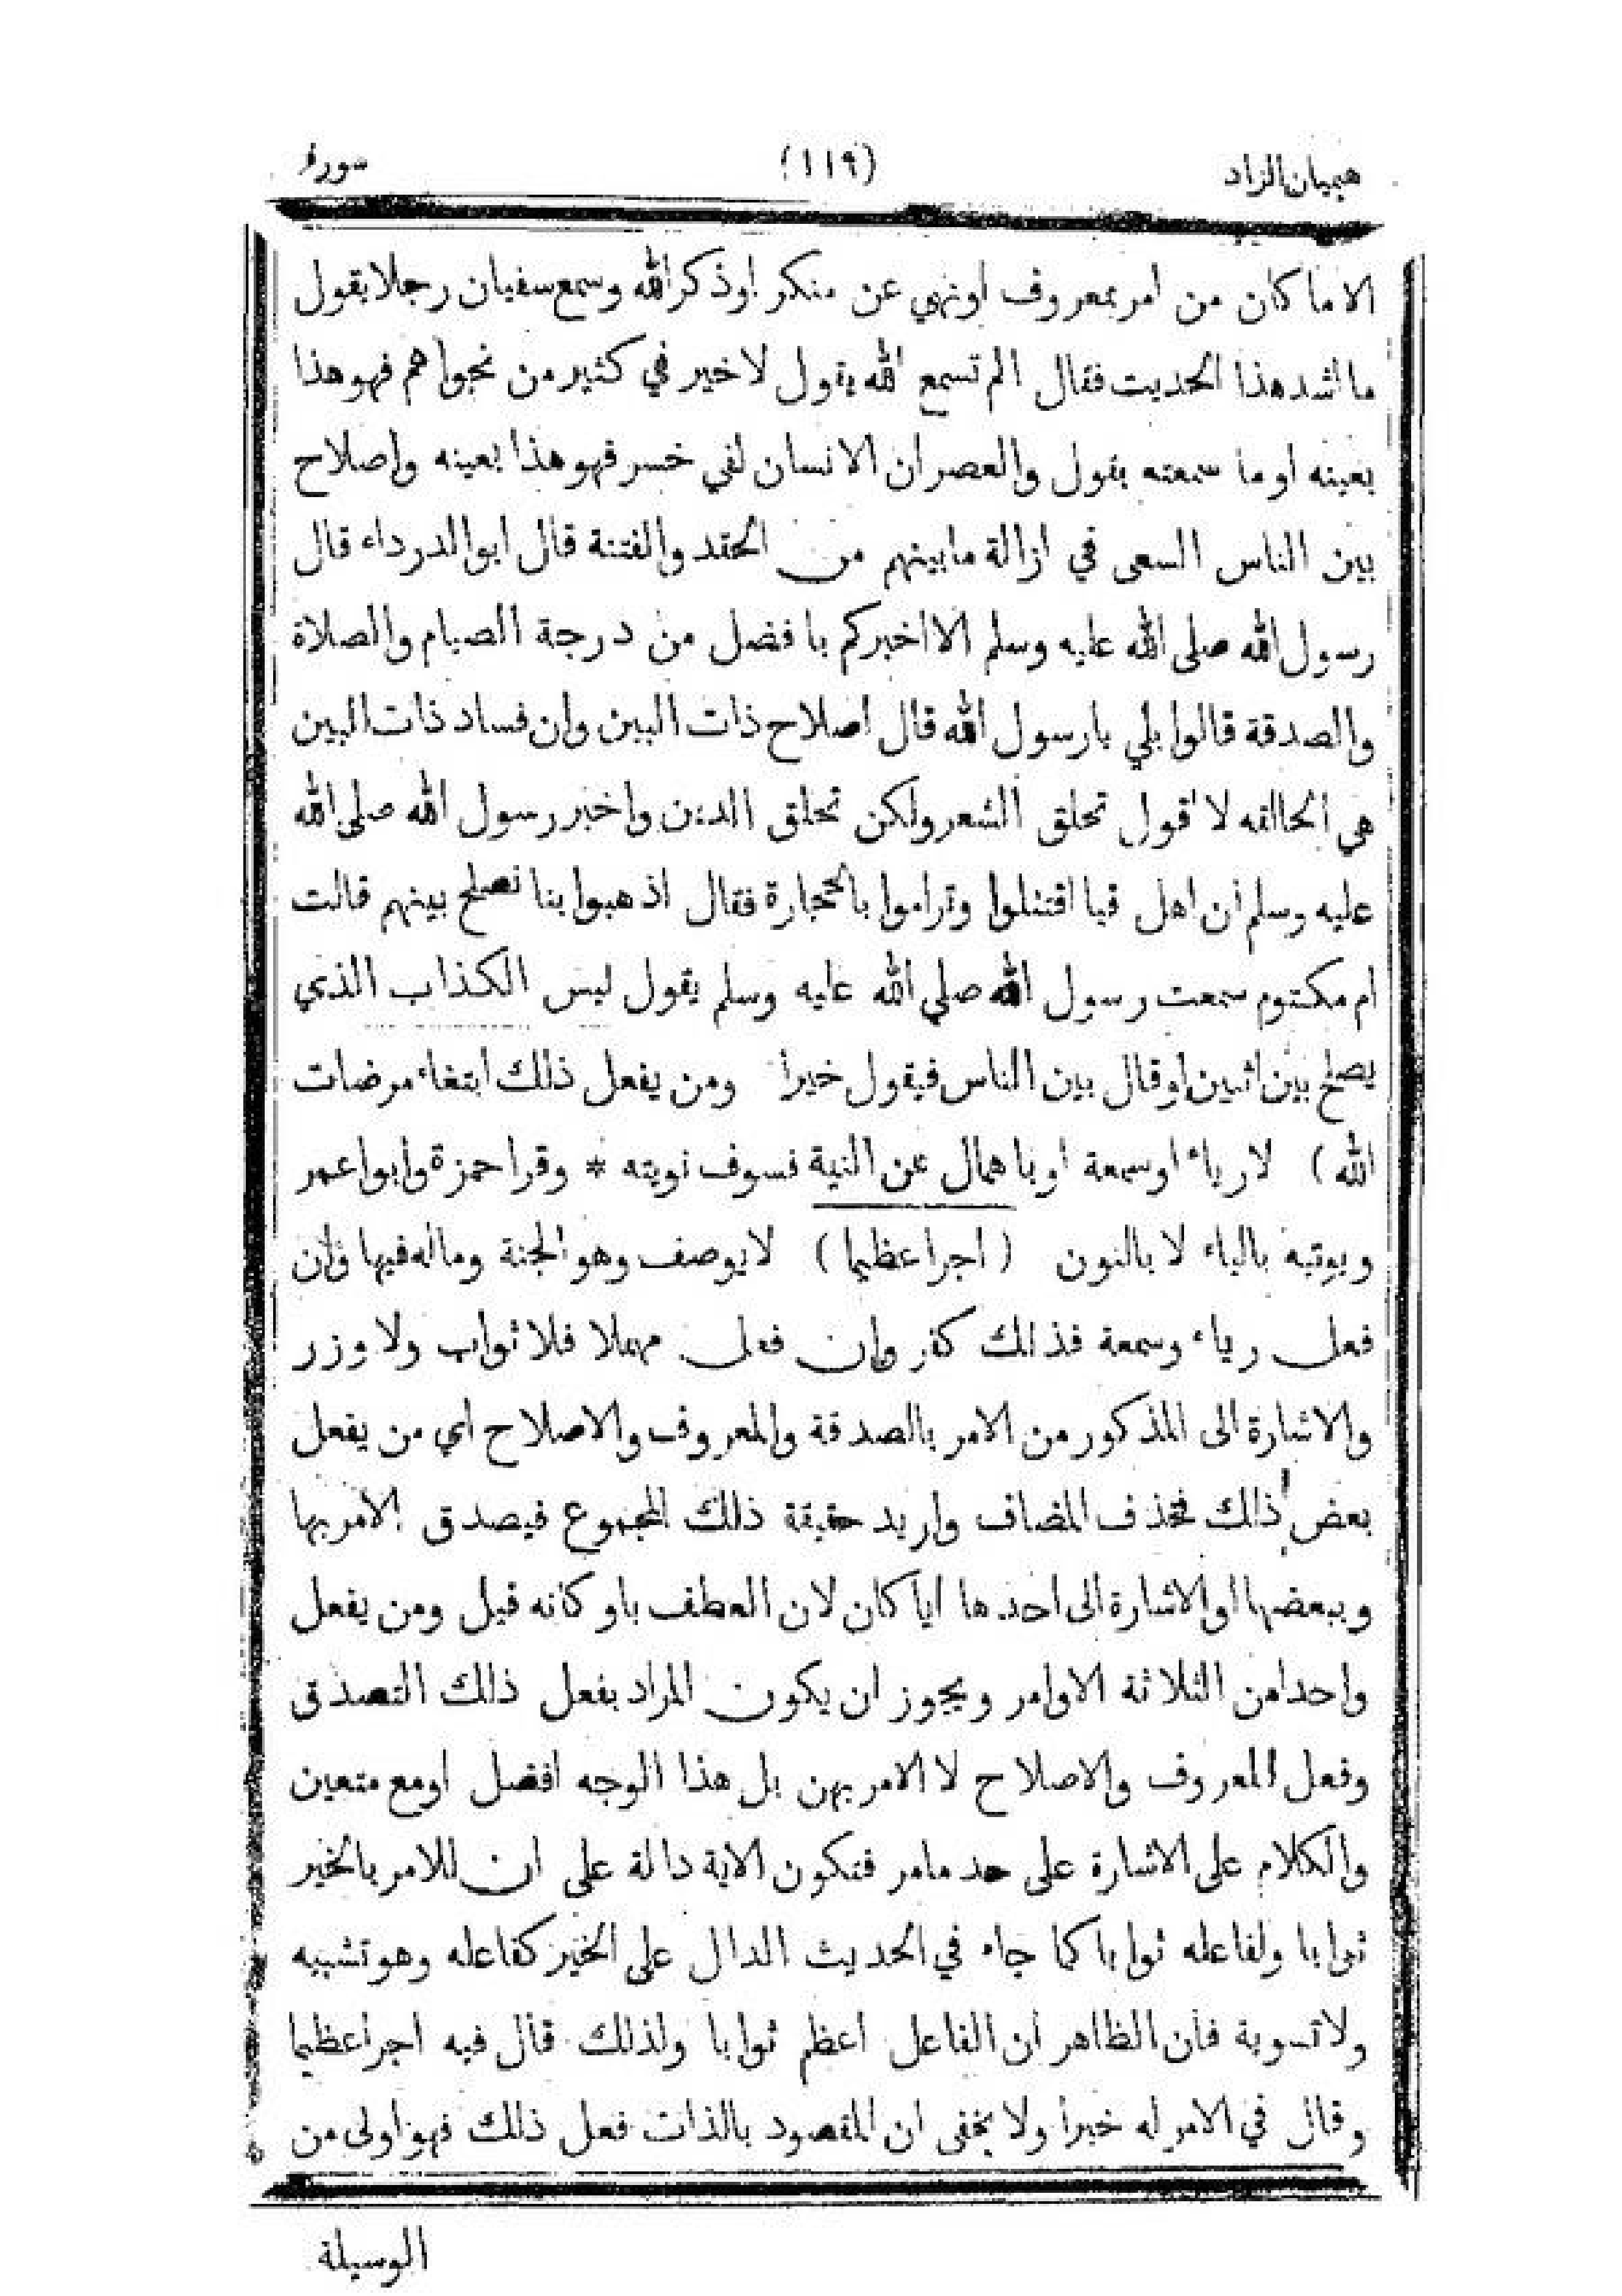 هميان الزاد (١١٩) سورة
الا ما كان من امر بمعروف او نهي عن منكر او ذكر الله وسمع سفيان رجلا يقول
ما اشد هذا الحديث فقال الم تسمع الله يقول لا خير في كثير من نجواهم فهو هذا
بعينه او ما سمعته يقول والعصر ان الانسان لفي خسر فهو هذا بعينه واصلاح
بين الناس السعى في ازالة ما بينهم من الحقد والفتنة قال ابو الدرداء قال
رسول الله صلى الله عليه وسلم الا اخبركم بافضل من درجة الصيام والصلاة
والصدقة قالوا بلي يا رسول الله قال اصلاح ذات البين وان فساد ذات البين
هي الحالقه لا اقول تحلق الشعر ولكن تحلق الدين واخبر رسول الله صلى الله
عليه وسلم ان اهل قبا اقتتلوا وتراموا بالحجارة فقال اذهبوا بنا نصلح بينهم قالت
ام مكتوم سمعت رسول الله صلي الله عليه وسلم يقول ليس الكذاب الذي
يصلح بين اثنين او قال بين الناس فيقول خيرا ومن يفعل ذلك ابتغاء مرضات
الله ) لا رياء او سمعة او باهمال عن النية فسوف نويته * وقرا حمزة وابوا عمر
ويوتيه بالياء لا بالنون ( اجرا عظيما ) لا يوصف وهو الجنة وماله فيها وان
فعل رياء وسمعة فذالك كفر وان فعل مهملا فلا ثواب ولا وزر
والاشارة الى المذكور من الامر بالصدقة والمعروف والاصلاح اي من يفعل
بعض ذلك فحذف المضاف واريد حقيقة ذلك المجموع فيصدق الامر بها
وببعضها او الاشارة الى احدها ايا كان لان العطف باو كانه قيل ومن يفعل
واحدا من الثلاثة الاوامر ويجوز ان يكون المراد بفعل ذلك التصدق
وفعل المعروف والاصلاح لا الامر بهن بل هذا الوجه افضل او مع متعين
والكلام على الاشارة على حد مامر فتكون الاية دالة على ان للامر بالخير
ثوابا ولفاعله ثوابا كما جاء في الحديث الدال على الخير كفاعله وهو تشبيه
ولا تسوية فان الظاهر ان الفاعل اعظم ثوابا ولذلك قال فيه اجرا عظيما
وقال في الامر له خيرا ولا يخفى ان المقصود بالذات فعل ذلك فهو اولى من
الوسيلة